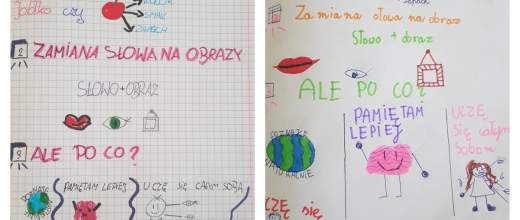 Jabłko czy
SMAK
ZAPACH
2 ZAMIANA SŁOWA NA OBRAZY
SŁOWO + OBRAZ
3 ALE PO CO?
POZNAJĘ NATURALNIE
PAMIĘTAM LEPIEJ
UCZĘ SIĘ CAŁYM SOBĄ
Zamiana słowa na obraz
Słowo + obraz
ALE PO CO?
POZNAJĘ
NATURALNIE
PAMIĘTAM
LEPIEJ
UCZĘ
się całym
Sobom
UCZĘ się